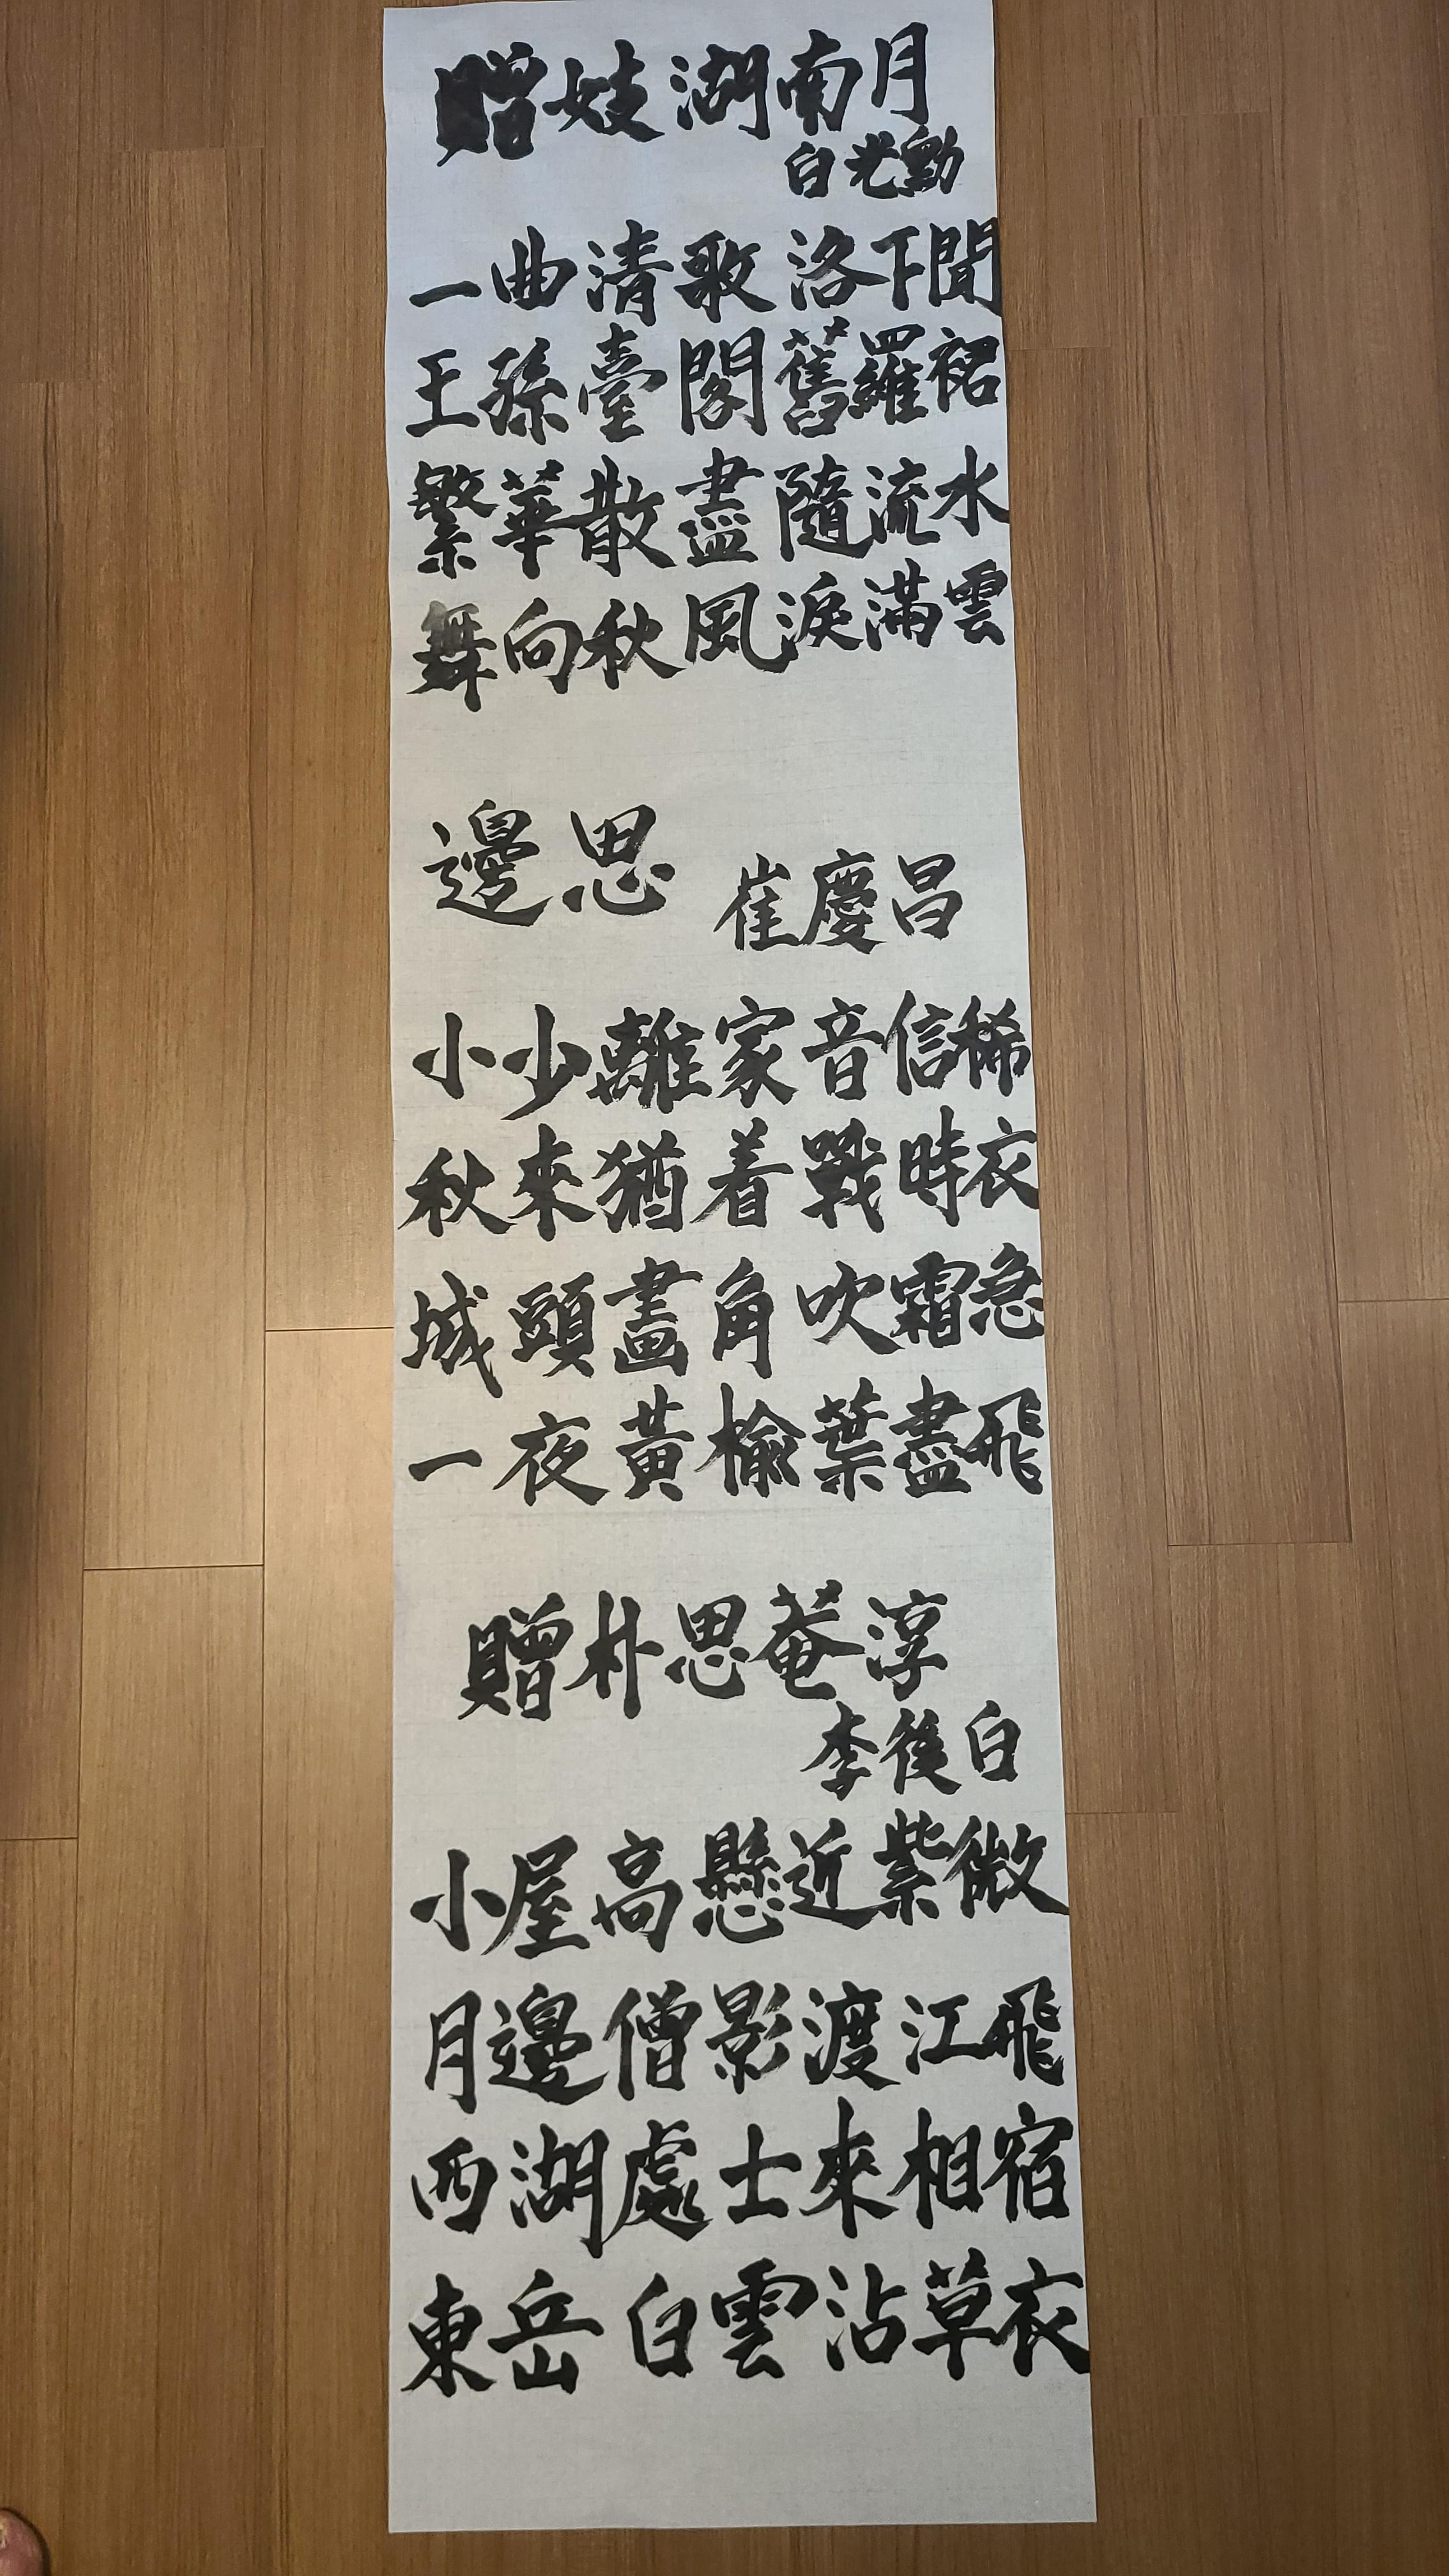 贈妓湖南月
白光勳
一曲清歌洛下聞
王孫臺閣舊羅裙
繁華散盡隨流水
舞向秋風淚滿雲
邊思 崔慶昌
小少離家音信稀
秋來猶着戰時衣
城頭畫角吹霜急
一夜黃榆葉盡飛
贈朴思菴淳
李後白
小屋高懸近紫微
月邊僧影渡江飛
西湖處士來相宿
東岳白雲沾草衣